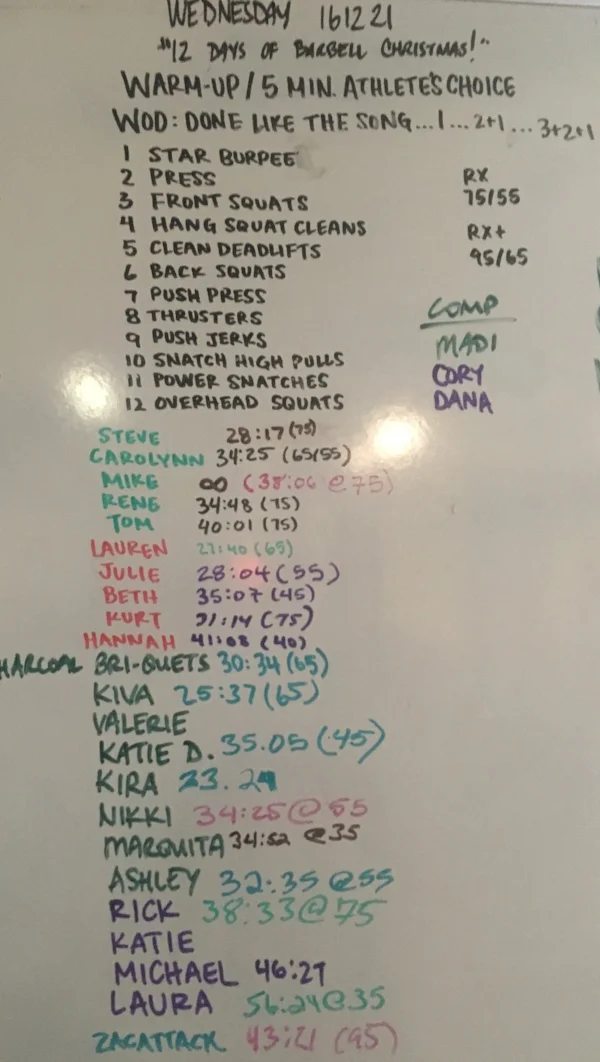 WEDNESDAY 161221
"12 DAYS OF BARBELL CHRISTMAS!"
WARM-UP / 5 MIN. ATHLETE'S CHOICE
WOD: DONE LIKE THE SONG...1...2+1...3+2+1
1 STAR BURPEE
2 PRESS
RX
3 FRONT SQUATS
75/55
4 HANG SQUAT CLEANS
RX+
5 CLEAN DEADLIFTS
95/65
6 BACK SQUATS
7 PUSH PRESS
8 THRUSTERS
9 PUSH JERKS
10 SNATCH HIGH PULLS
11 POWER SNATCHES
12 OVERHEAD SQUATS
COMP
MADI
CORY
DANA
STEVE 28:17 (75)
CAROLYNN 34:25 (65/55)
MIKE ∞ (38:06 @75)
RENE 34:48 (75)
TOM 40:01 (75)
LAUREN 27:40 (65)
JULIE 28:04 (55)
BETH 35:07 (45)
KURT 31:14 (75)
HANNAH 41:08 (40)
HARCOAL BRI-QUETS 30:34 (65)
KIVA 25:37 (65)
VALERIE
KATIE D. 35.05 (45)
KIRA
NIKKI 34:25 @ 55
MARQUITA 34:52 @35
ASHLEY 32:35 @55
RICK 38:33 @ 75
KATIE
MICHAEL 46:27
LAURA 56:24 @ 35
ZACATTACK 43:21 (95)